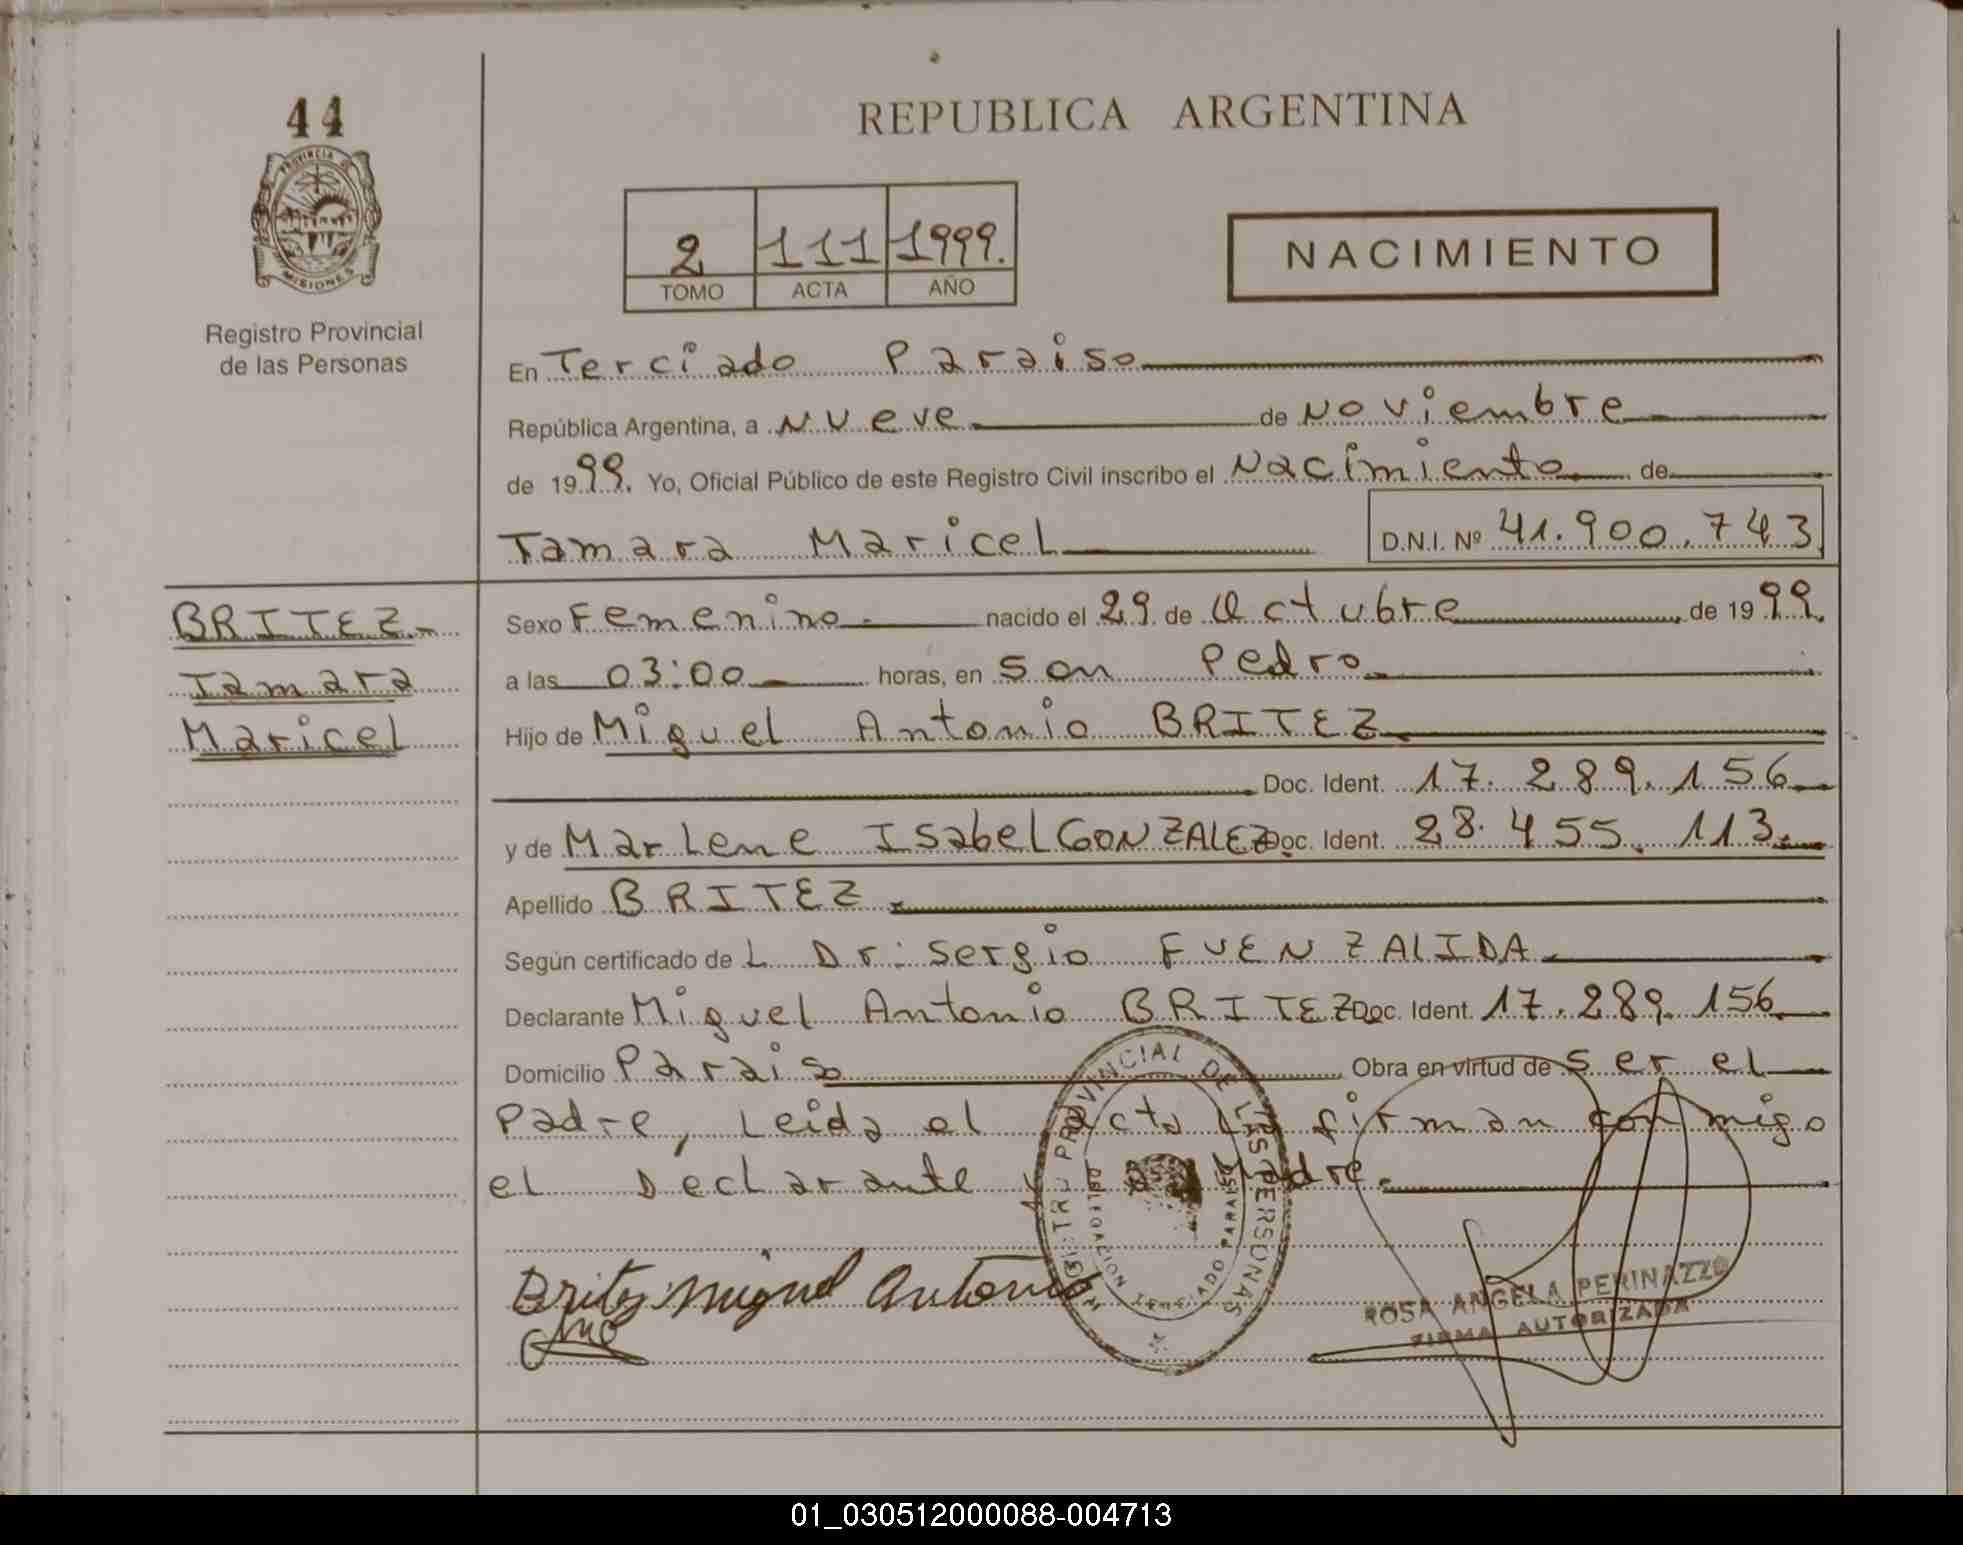 44
PROVINCIA DE
MISIONES
Registro Provincial
de las Personas
REPUBLICA ARGENTINA
2 111 1999.
TOMO ACTA AÑO
NACIMIENTO
En Terciado Paraiso
República Argentina, a Nueve de Noviembre
de 1999. Yo, Oficial Público de este Registro Civil inscribo el Nacimiento de
Tamara Maricel D.N.I. Nº 41.900.743
BRITEZ
Tamara
Maricel
Sexo Femenino nacido el 29 de Octubre de 1999.
a las 03:00 horas, en San Pedro
Hijo de Miguel Antonio BRITEZ
Doc. Ident. 17.289.156
y de Marlene Isabel GONZALEZ Doc. Ident. 28.455.113
Apellido BRITEZ
Según certificado de L Dr: Sergio FUENZALIDA
Declarante Miguel Antonio BRITEZ Doc. Ident. 17.289.156
Domicilio Paraiso Obra en virtud de ser el
Padre, Leida el acta firman conmigo
el Declarante y la Madre.
REGISTRO PROVINCIAL DE LAS PERSONAS
DELEGACION TERCIADO PARAISO
Britez Miguel Antonio
ROSA ANGELA PERINAZZO
FIRMA AUTORIZADA
01_030512000088-004713